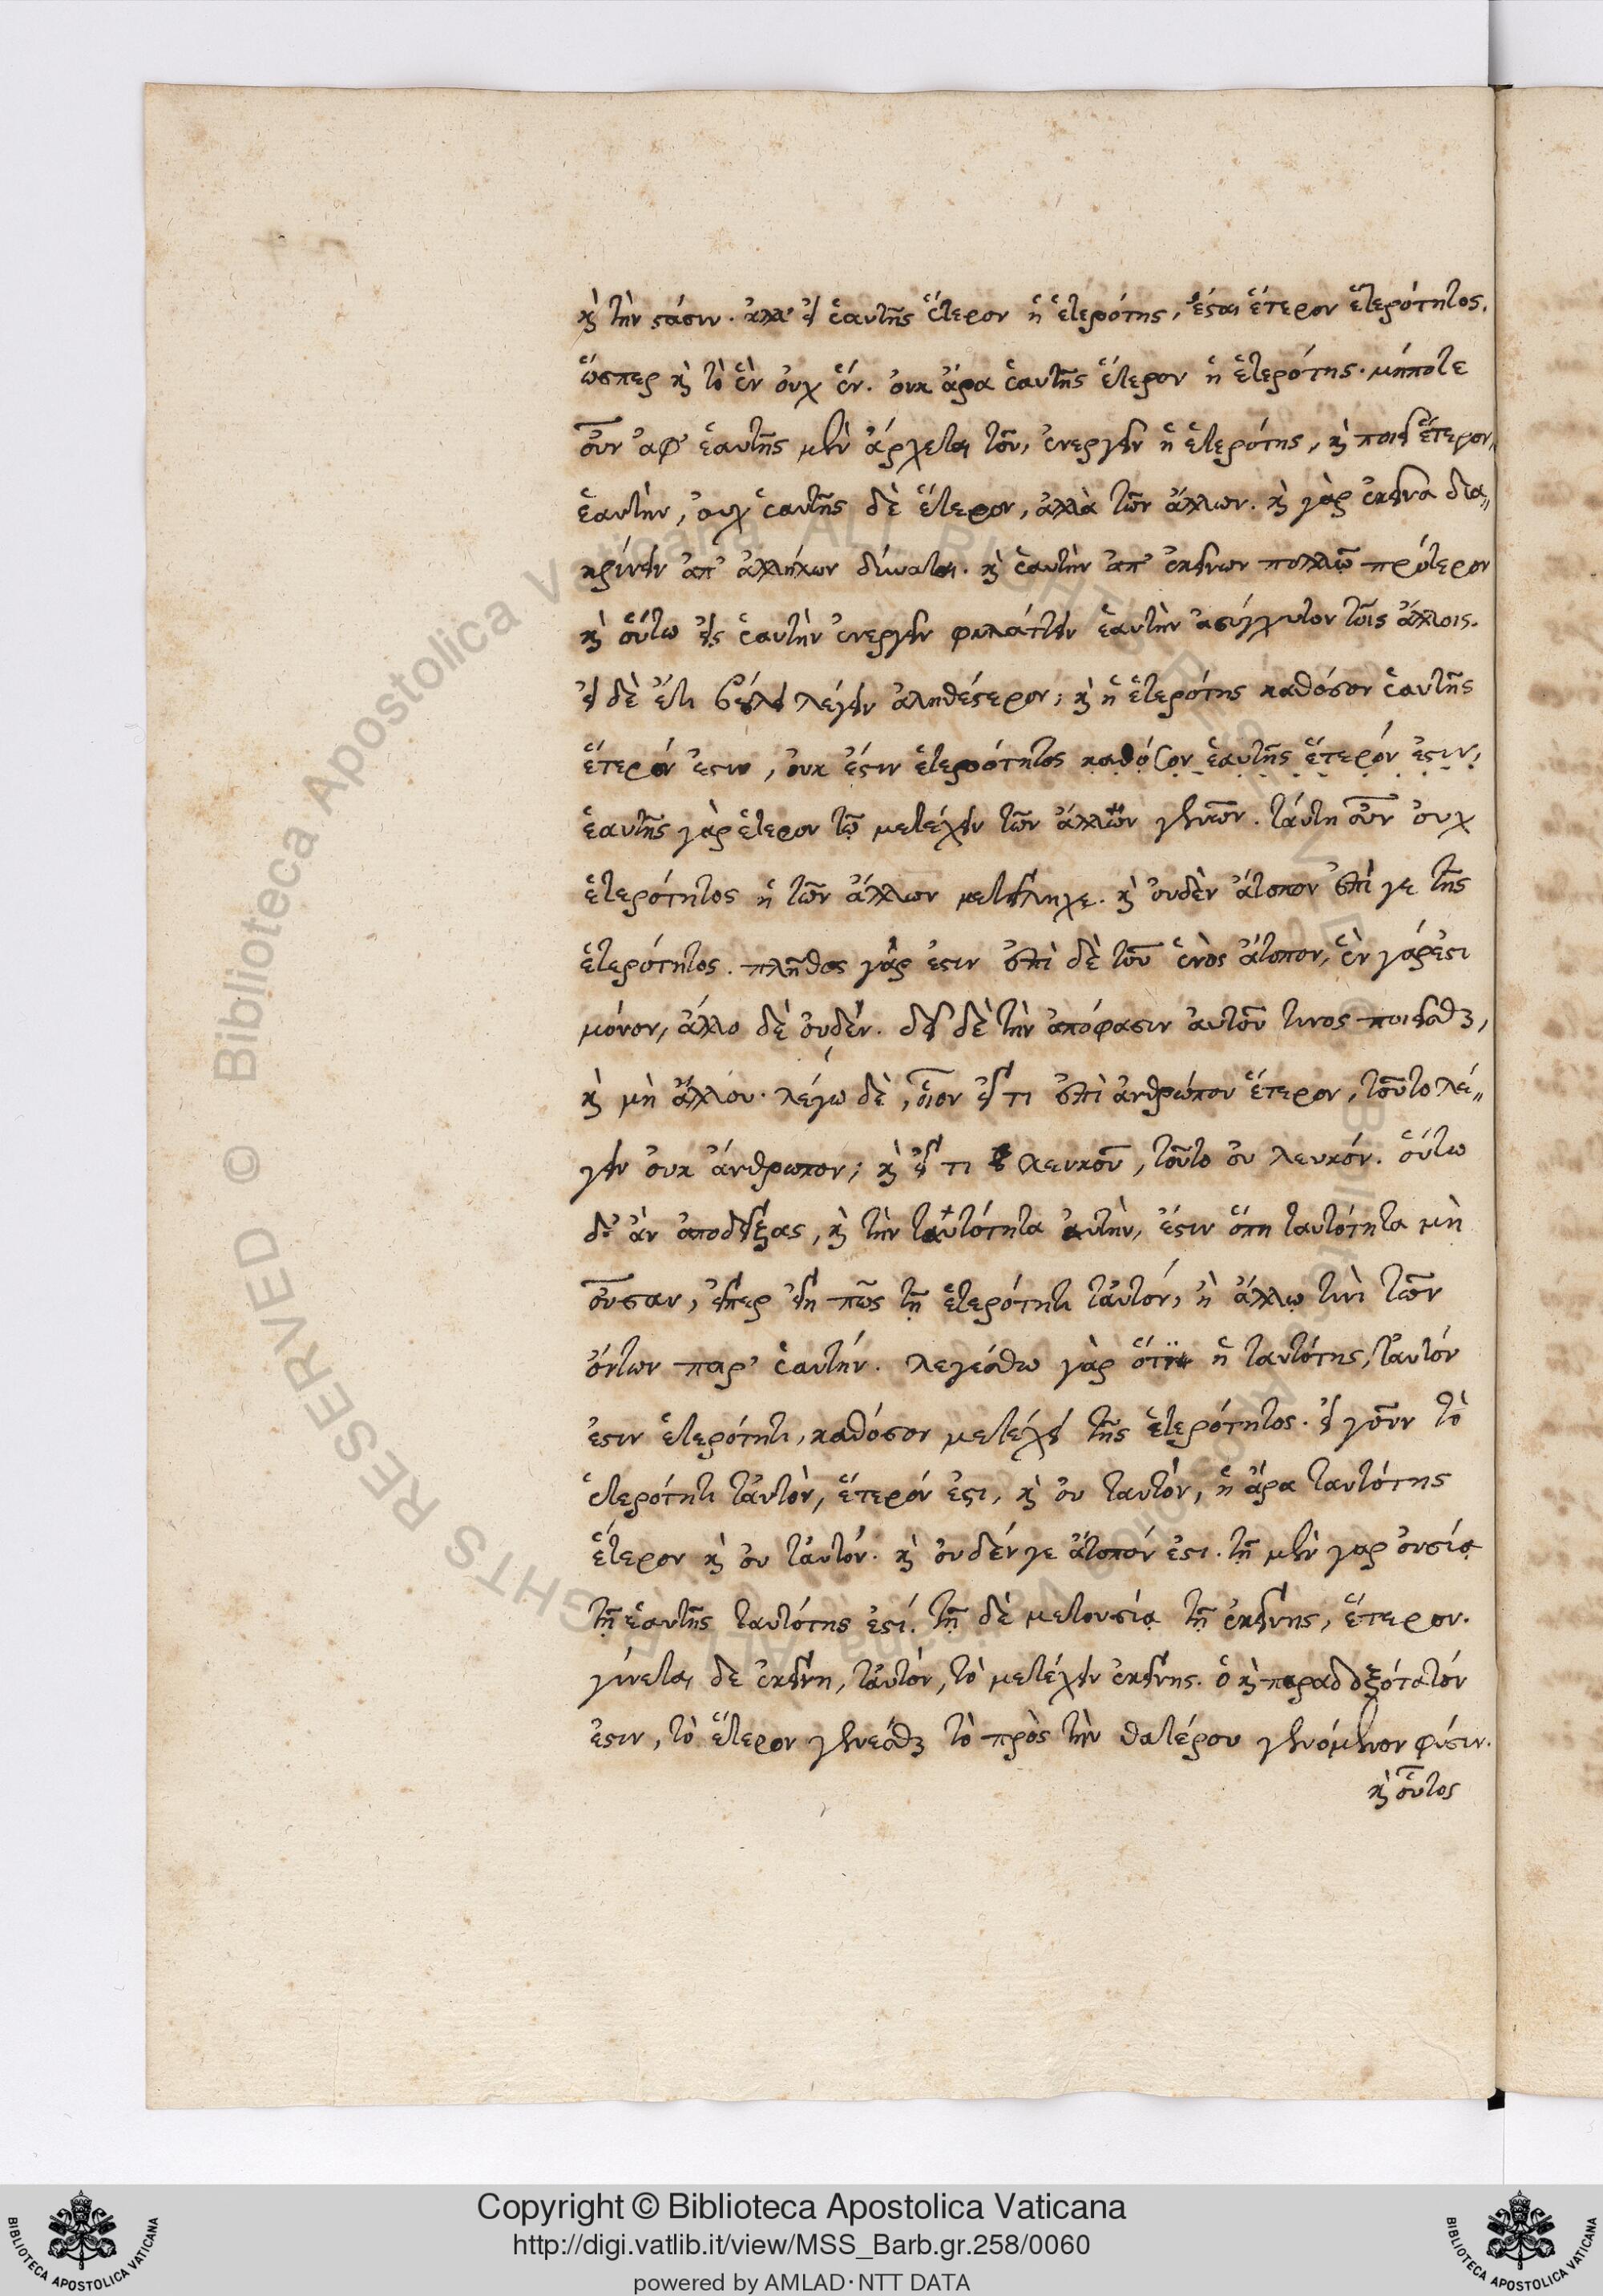 καὶ τὴν στάσιν. ἀλλ' εἰ ἑαυτῆς ἕτερον ἡ ἑτερότης, ἔσται ἕτερον ἑτερότητος.
ὥσπερ καὶ τὸ ἓν οὐχ ἕν. οὐκ ἄρα ἑαυτῆς ἕτερον ἡ ἑτερότης. μήποτε
οὖν ἀφ' ἑαυτῆς μὲν ἄρχεται τοῦ, ἐνεργεῖν ἡ ἑτερότης, καὶ ποιεῖ ἕτερον,
ἑαυτὴν, οὐχ ἑαυτῆς δὲ ἕτερον, ἀλλὰ τῶν ἄλλων. καὶ γὰρ ἐκεῖνα δια„
κρίνειν ἀπ' ἀλλήλων δύναται. καὶ ἑαυτὴν ἀπ' ἐκείνων πολλῷ πρότερον
καὶ οὕτω εἰς ἑαυτὴν ἐνεργεῖν φυλάττειν ἑαυτὴν ἀσύγχυτον τοῖς ἄλλοις.
εἰ δὲ ἔτι βούλει λέγειν ἀληθέστερον; καὶ ἡ ἑτερότης καθόσον ἑαυτῆς
ἕτερόν ἐστιν, οὐκ ἔστιν ἑτερότητος καθόσον ἑαυτῆς ἕτερόν ἐστιν,
ἑαυτῆς γὰρ ἕτερον τῷ μετέχειν τῶν ἄλλων γενῶν. ταύτῃ οὖν οὐχ
ἑτερότητος ἢ τῶν ἄλλων μετείληχε. καὶ οὐδὲν ἄτοπον ἐπί γε τῆς
ἑτερότητος. πλῆθος γάρ ἐστιν ἐπὶ δὲ τοῦ ἑνὸς ἄτοπον, ἓν γάρ ἐστι
μόνον, ἄλλο δὲ οὐδέν. δεῖ δὲ τὴν ἀπόφασιν αὐτοῦ τινος ποιεῖσθαι,
καὶ μὴ ἄλλου. λέγω δὲ, οἷον εἴ τι ἐπὶ ἀνθρώπου ἕτερον, τοῦτο λέ„
γειν οὐκ ἄνθρωπον; καὶ εἴ τι λευκοῦ, τοῦτο οὐ λευκόν. οὕτω
δ' ἂν ἀποδείξας, καὶ τὴν ταυτότητα αὐτὴν, ἔστιν ὅπῃ ταυτότητα μὴ
οὖσαν, εἴπερ εἴη πῶς τῇ ἑτερότητι ταὐτόν, ἢ ἄλλῳ τινὶ τῶν
ὄντων παρ' ἑαυτήν. λεγέσθω γὰρ ὅτι ἡ ταυτότης, ταὐτόν
ἐστιν ἑτερότητι, καθόσον μετέχει τῆς ἑτερότητος. εἰ γοῦν τὸ
ἑτερότητι ταὐτὸν, ἕτερόν ἐστι, καὶ οὐ ταυτόν, ἡ ἄρα ταυτότης
ἕτερον καὶ οὐ ταὐτόν. καὶ οὐδέν γε ἄτοπόν ἐστι. τῇ μὲν γὰρ οὐσίᾳ
τῇ ἑαυτῆς ταυτότης ἐστί. τῇ δὲ μετουσίᾳ τῇ ἐκείνης, ἕτερον.
γίνεται δὲ ἐκείνῃ, ταὐτόν, τὸ μετέχειν ἐκείνης. ὃ καὶ παραδοξότατόν
ἐστιν, τὸ ἕτερον γενέσθαι τὸ πρὸς τὴν θατέρου γενόμενον φύσιν.
καὶ οὗτος
Copyright © Biblioteca Apostolica Vaticana
http://digi.vatlib.it/view/MSS_Barb.gr.258/0060
powered by AMLAD·NTT DATA